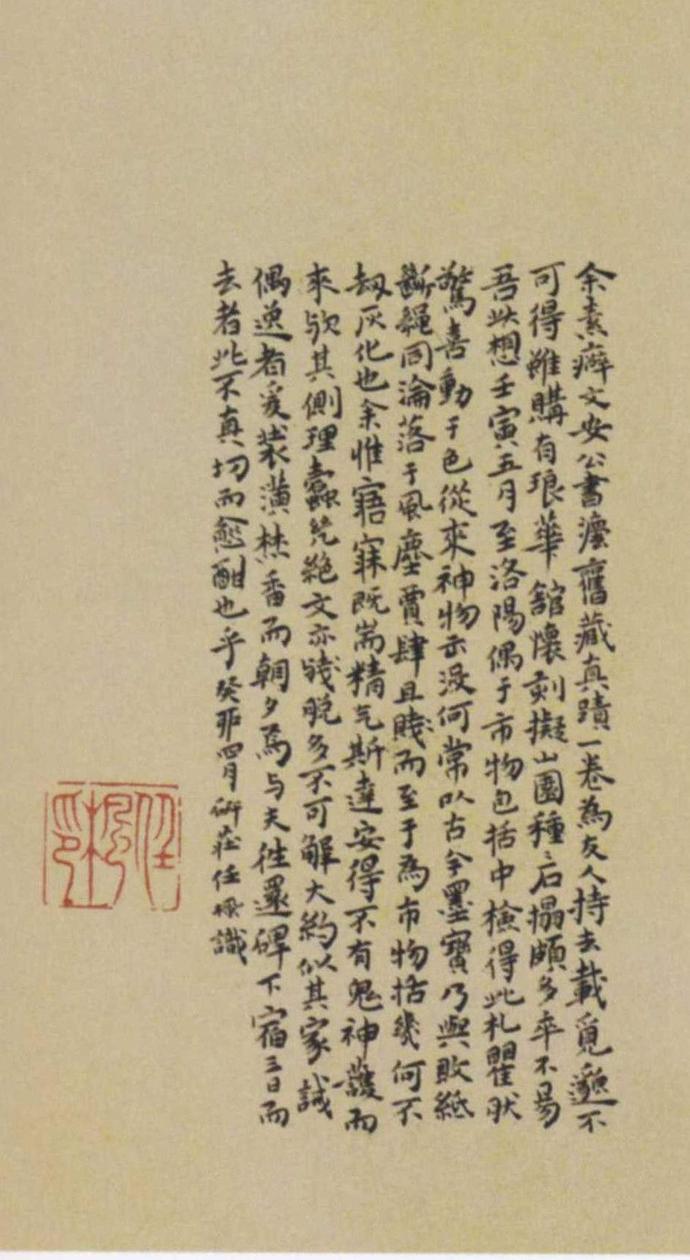 余素癖文安公書瀍舊藏真蹟一卷為友人持去載覓邈不
可得雖購有琅華舘懷刻擬山園種石搨頗多率不易
吾此想壬寅五月至洛陽偶于市物包括中檢得此札瞿肰
驚喜動于色從來神物示沒何常以古今墨寶乃與敗紙
斷繩同淪落于風塵賈肆且賤而至于為市物括幾何不
劫灰化也余惟寤寐既耑精气斯達安得不有鬼神護而
來欤其側理蠹繞絕文亦殘脫多不可解大約似其家誡
偶逸者爰裝潢焚香而朝夕焉与夫徃還碑下宿三日而
去者此不真切而愈酣也乎癸夘四月研莊任楓識